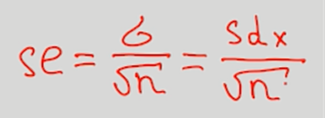 se = σ/√n = sdx/√n